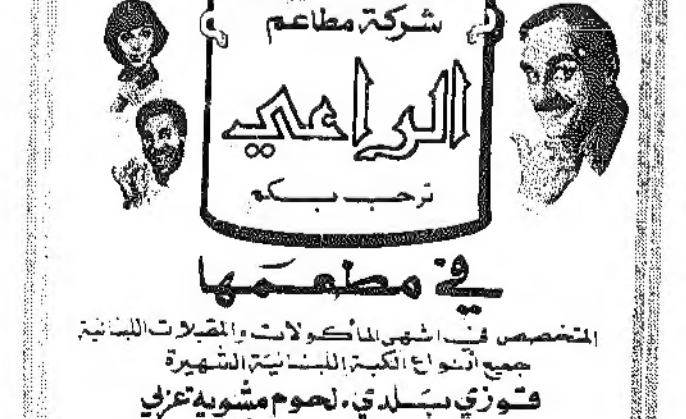 شركة مطاعم
الراعي
ترحب بكم
في مطعمها
المتخصص في اشهى المأكولات والمقبلات اللبنانية
جميع أنواع الكبة اللبنانية الشهيرة
قوزي بلدي، لحوم مشوية عربي